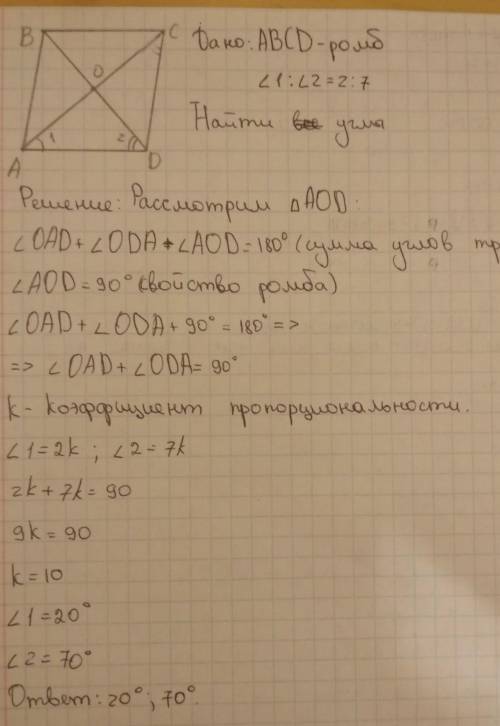 B
C
O
1
2
A
D
Дано: ABCD - ромб
∠1:∠2=2:7
Найти все углы
Решение: Рассмотрим △AOD:
∠OAD+∠ODA+∠AOD=180° (сумма углов тр
∠AOD=90° (войство ромба)
∠OAD+∠ODA+90°=180° =>
=> ∠OAD+∠ODA=90°
k - коэффициент пропорциональности.
∠1=2k ; ∠2=7k
2k+7k=90
9k=90
k=10
∠1=20°
∠2=70°
Ответ: 20°; 70°.